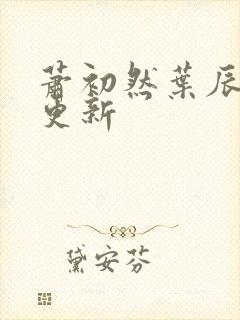 萧初然叶辰
更新
黛安芬